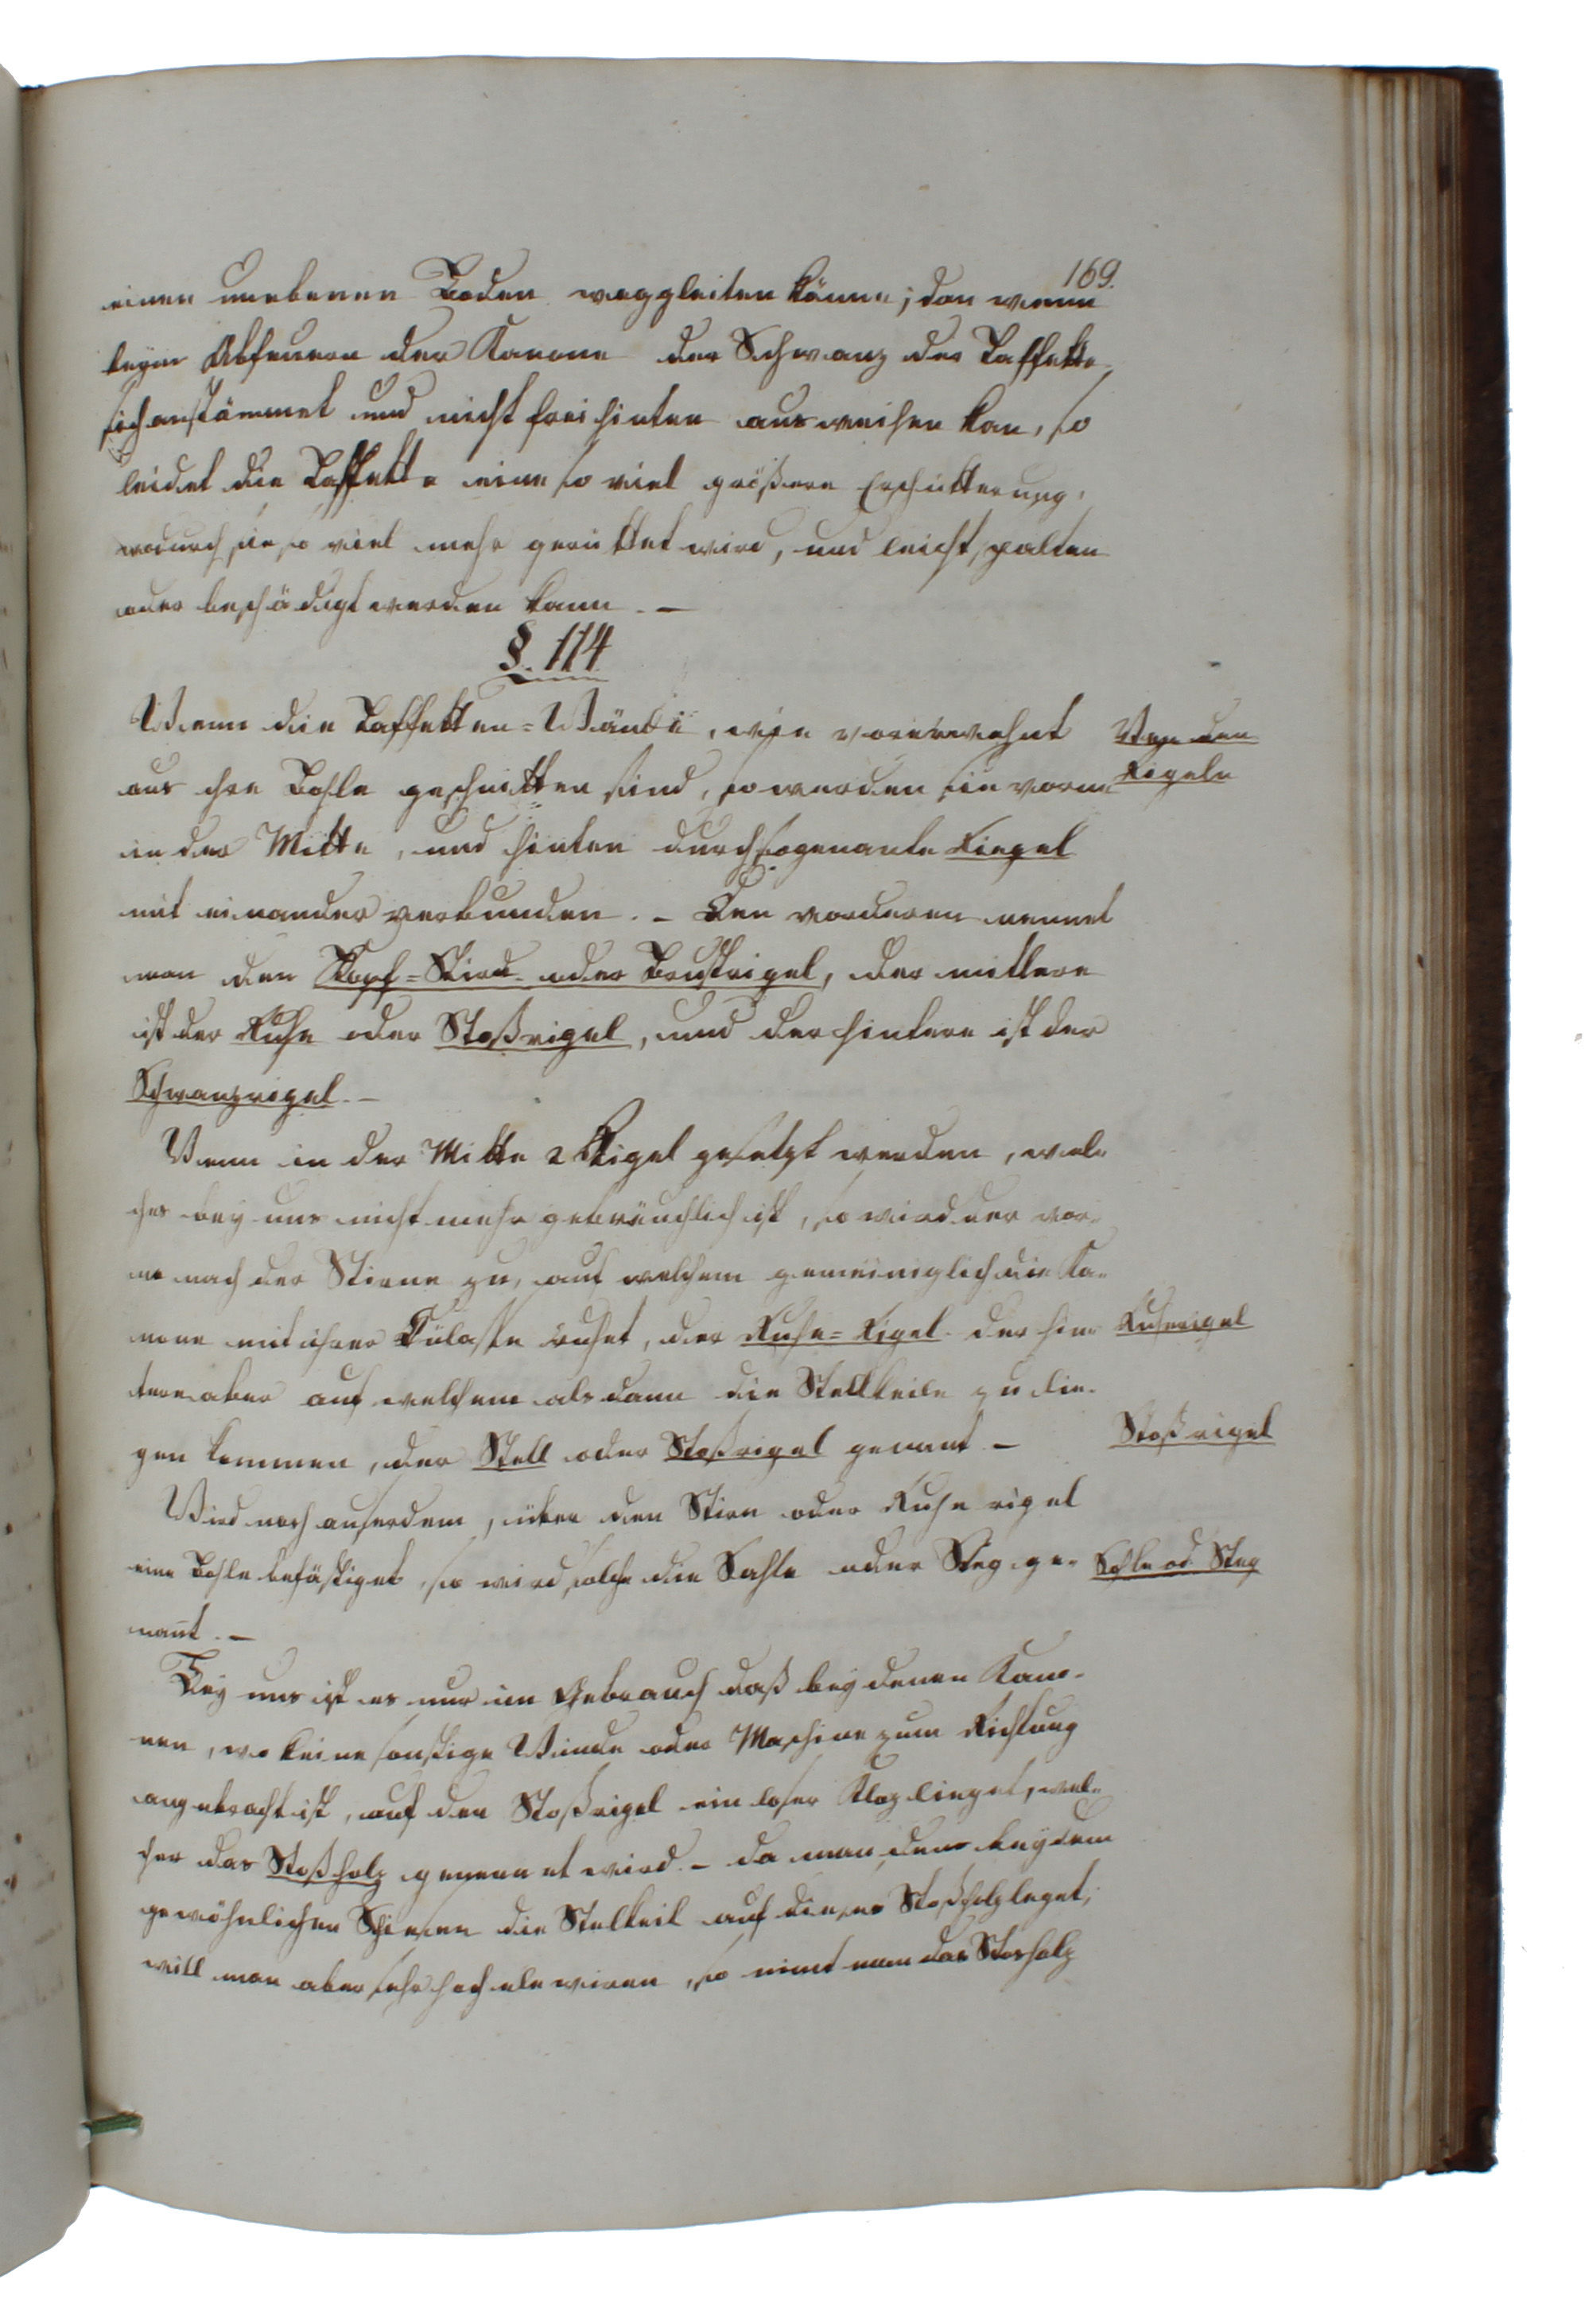 169.
einen unebenen Boden weggleiten könne; dan wenn
beym Abfeuern der Kanone der Schwanz der Laffette
sich anstämmet und nicht frei hinten ausweichen kan, so
leidet die Laffette eine so viel größere Erschütterung,
wodurch sie so viel mehr gerüttet wird, und leicht spalten
oder beschädigt werden kann. —
§. 114
Wenn die Laffetten-Wände, wie vorerwehnt
Von den
aus ihre Bohle geschnitten sind, so werden sie vorne
Rigeln
in der Mitte, und hinten durch sogenante Riegel
mit einander verbunden. – Den vorderen nennet
man den Kopf-Stirn oder Brustrigel, der mittlere
ist der Ruhe oder Stoßrigel, und der hintere ist der
Schwanzrigel. –
Wenn in der Mitte 2 Rigel gesetzt werden, wel-
ches bey uns nicht mehr gebräuchlich ist, so wird der vor-
ne nach der Stirne zu, auf welchem gemeiniglich die Ka-
none mit ihrer Külasse ruhet, der Ruhe-Rigel. der hin-
Ruherigel
tere aber auf welchem als dann die Stellkeile zu lie-
gen kommen, der Stell oder Stoßrigel genant. –
Stoßrigel
Wird noch auserdem, über den Stirn oder Ruhe rigel
eine Bohle befästiget, so wird solche die Sohle oder Steg ge-
Sohle od Steg
nan̄t. –
Bey uns ist es nur im Gebrauch daß bey denen Kano-
nen, wo keine sonstige Winde oder Maschine zum Richtung
angebracht ist, auf den Stoßrigel ein loser Kloz lieget, wel-
cher das Stoßholz genennet wird. – da man den bey dem
gewöhnlichen Schiesen die Stelkeil auf dieses Stoßholz leget,
will man aber sehr hoch elewiren, so nimt man das Stosholz